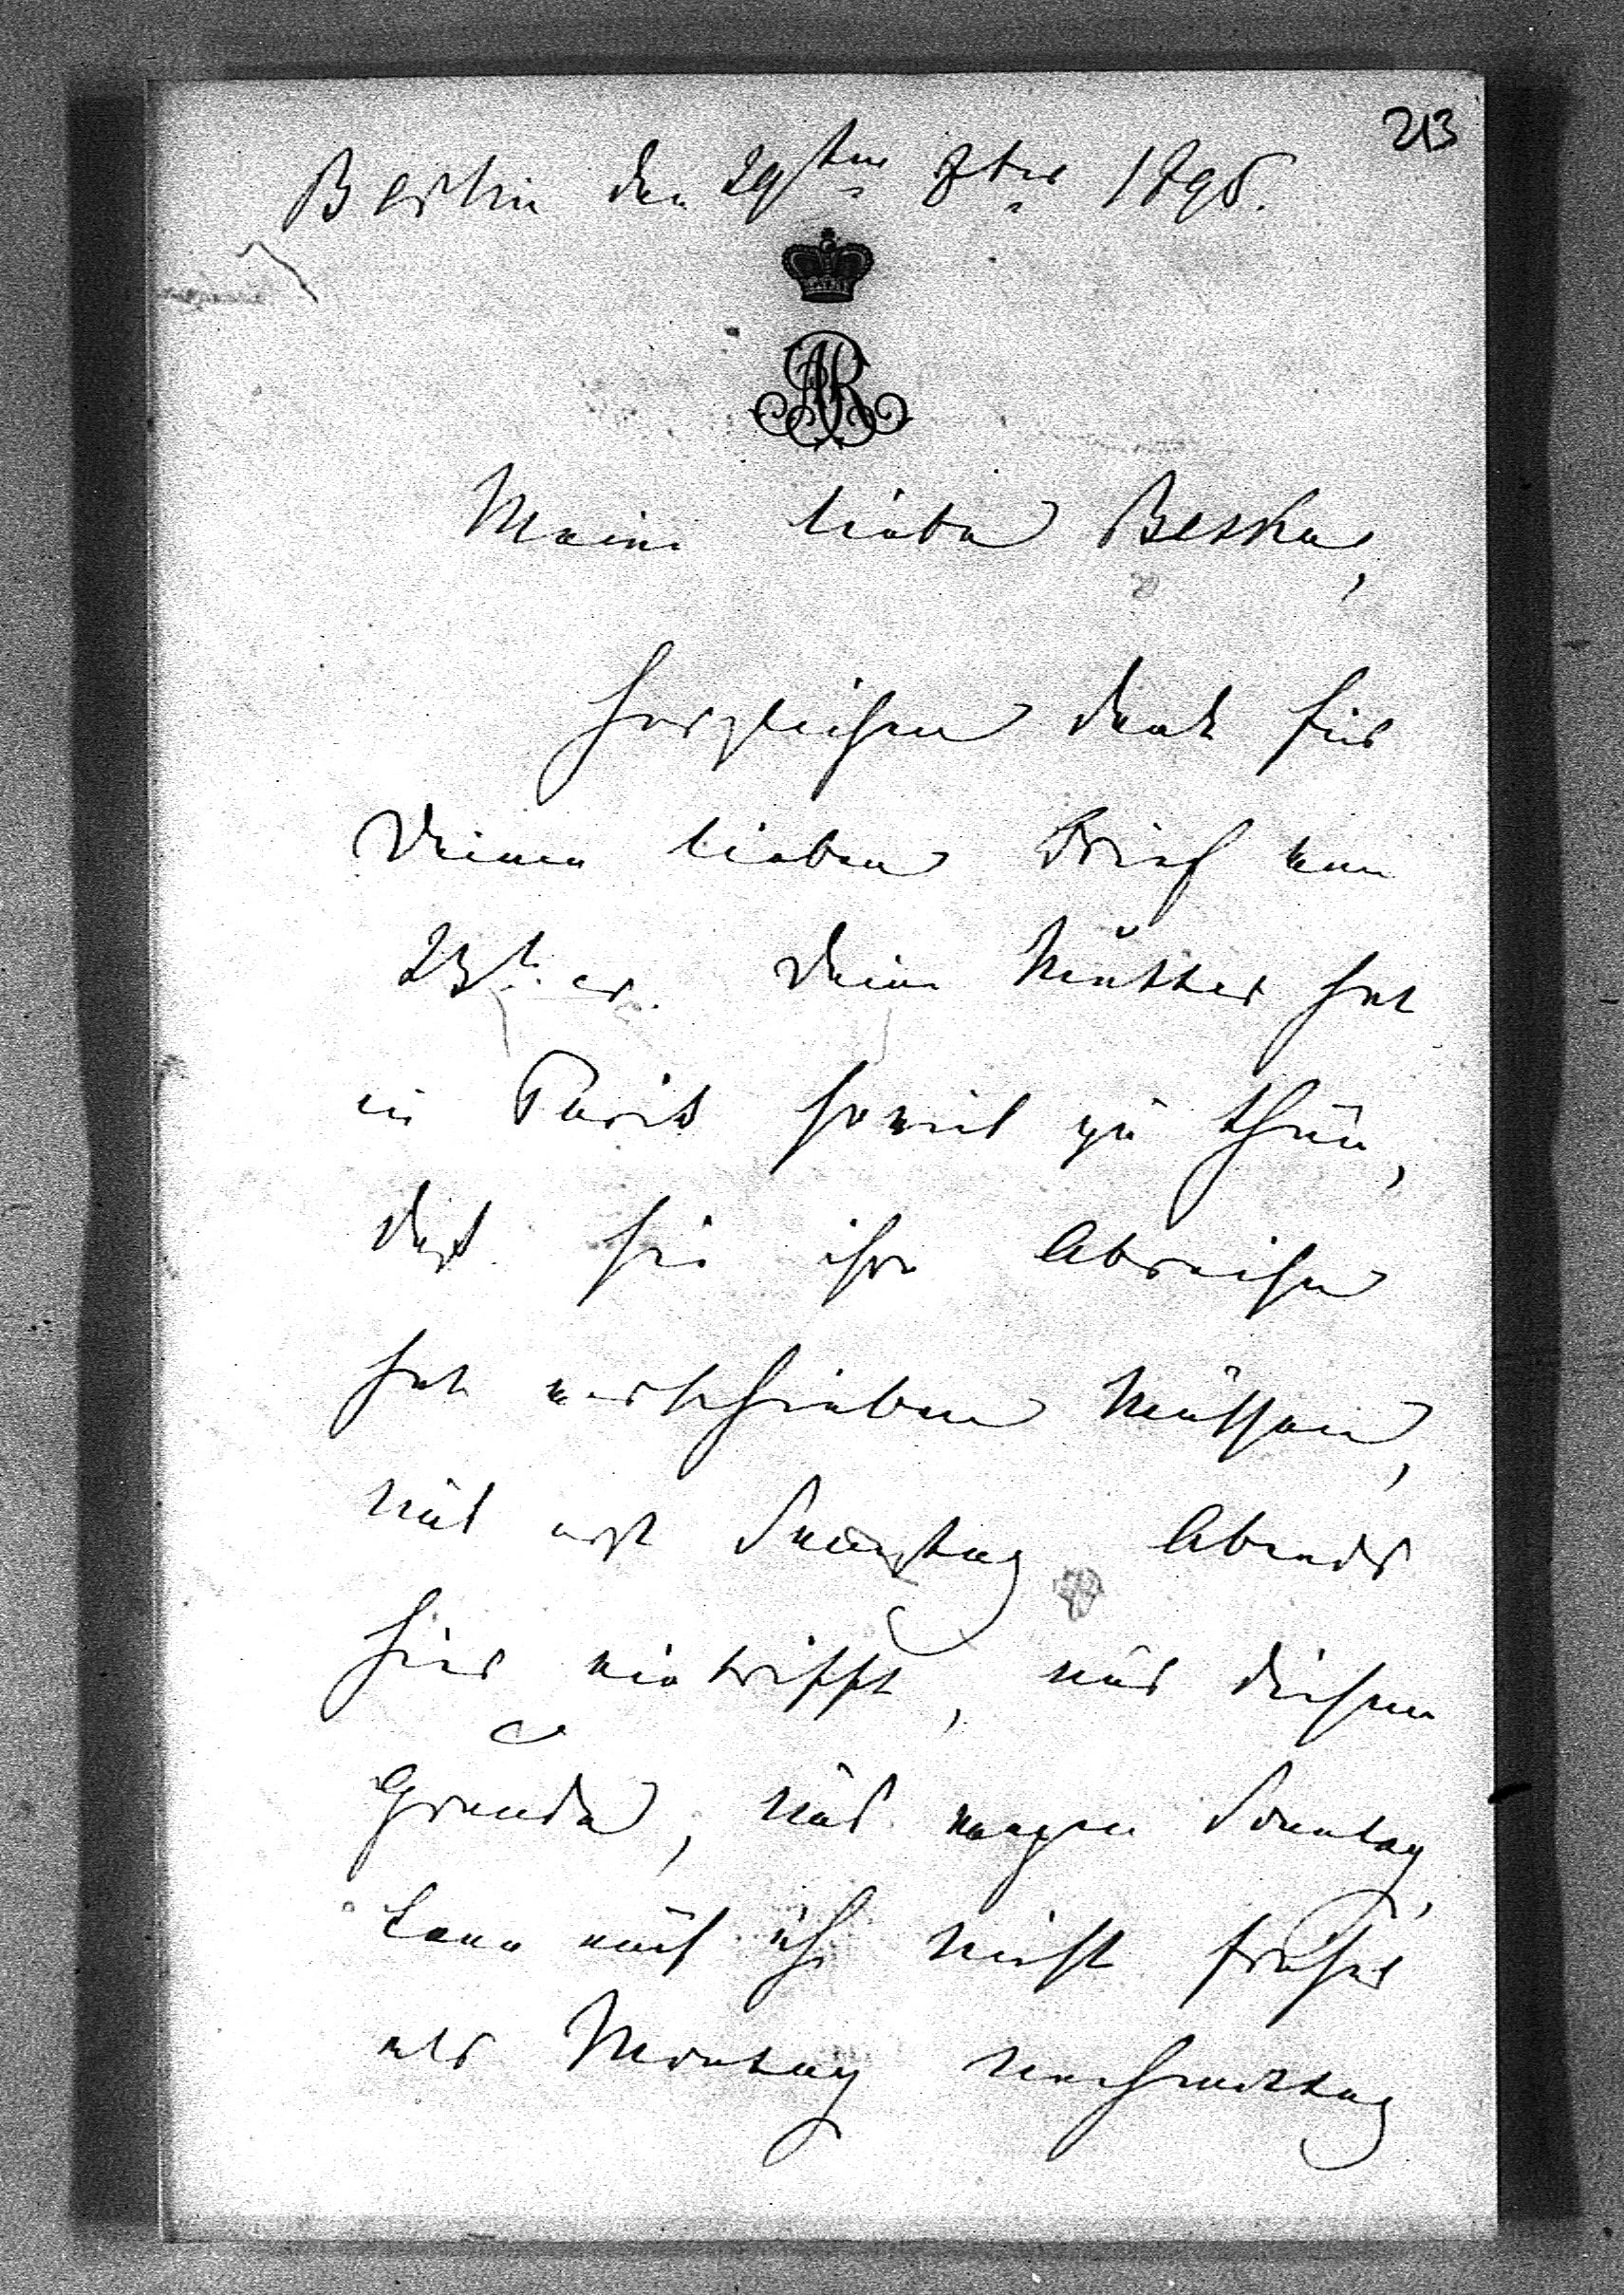 213
Berlin den 29ten 8ber 1898.
AR
Meine liebe Beska,
Herzlichen Dank für
Deinen lieben Brief vom
23t. cr. Deine Mutter hat
in Paris soviel zu thun,
daß sie ihre Abreise
hat verschieben müssen,
und erst Samstag Abends
hier eintrifft, aus diesem
Grunde, und wegen Sonntag,
kann auch ich nicht früher
als Montag Nachmittag